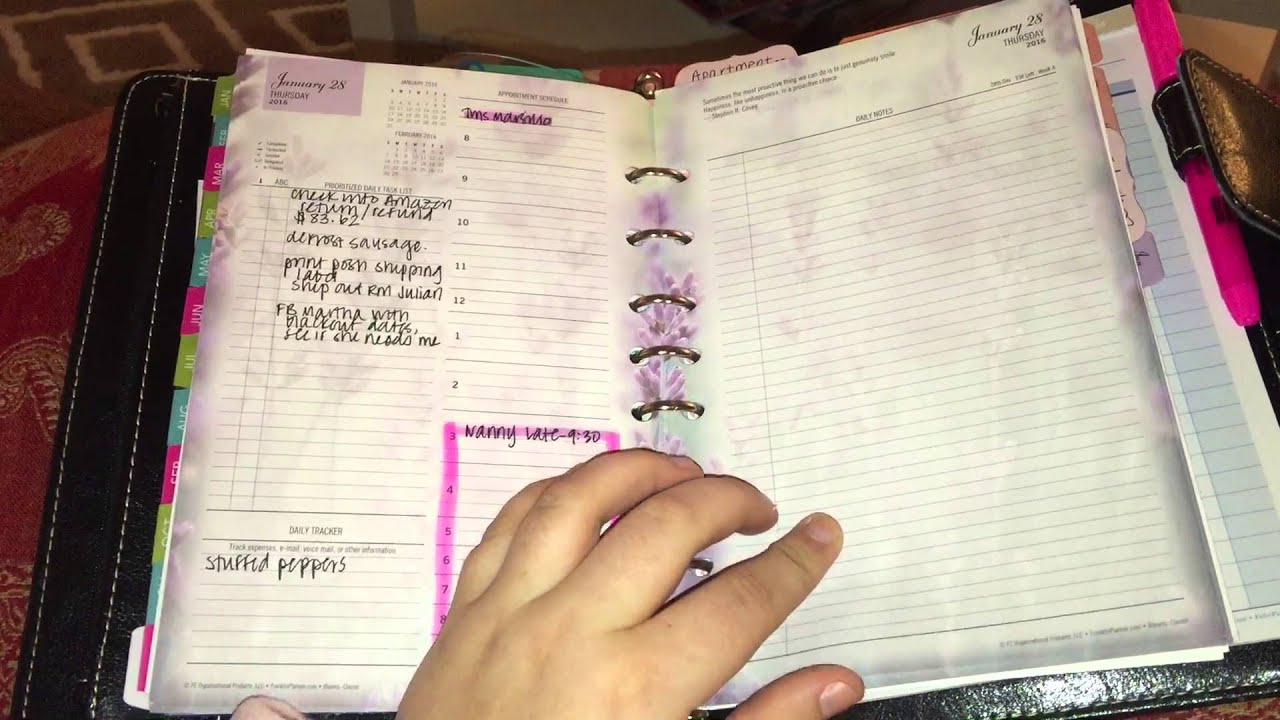 January 28
THURSDAY
2016
JANUARY 2016
FEBRUARY 2016
PRIORITIZED DAILY TASK LIST
ABC
check into Amazon
return/refund
$83.62
defrost sausage.
print posh shipping
label
ship out RM Julian
FB Martha with
blackout dates,
see if she needs me
DAILY TRACKER
Track expenses, e-mail, voice mail, or other information
stuffed peppers
APPOINTMENT SCHEDULE
8
9
10
11
12
1
2
3 Nanny Late-9:30
4
5
6
7
8
JAN
MAR
APR
MAY
JUN
JUL
AUG
SEP
OCT
Apartment
Sometimes the most proactive thing we can do is to just genuinely smile.
Happiness, like unhappiness, is a proactive choice.
—Stephen R. Covey
January 28
THURSDAY
2016
28th Day 338 Left Week 4
DAILY NOTES